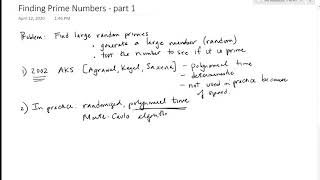 Finding Prime Numbers - part 1
April 12, 2020 1:46 PM
Problem: Find large random primes
• generate a large number (random)
• test the number to see if it is prime
1) 2002 AKS [Agrawal, Kayal, Saxena]
- polynomial time
- deterministic
- not used in practice because of speed.
2) In practice: randomized, polynomial time
Monte-Carlo algorithm